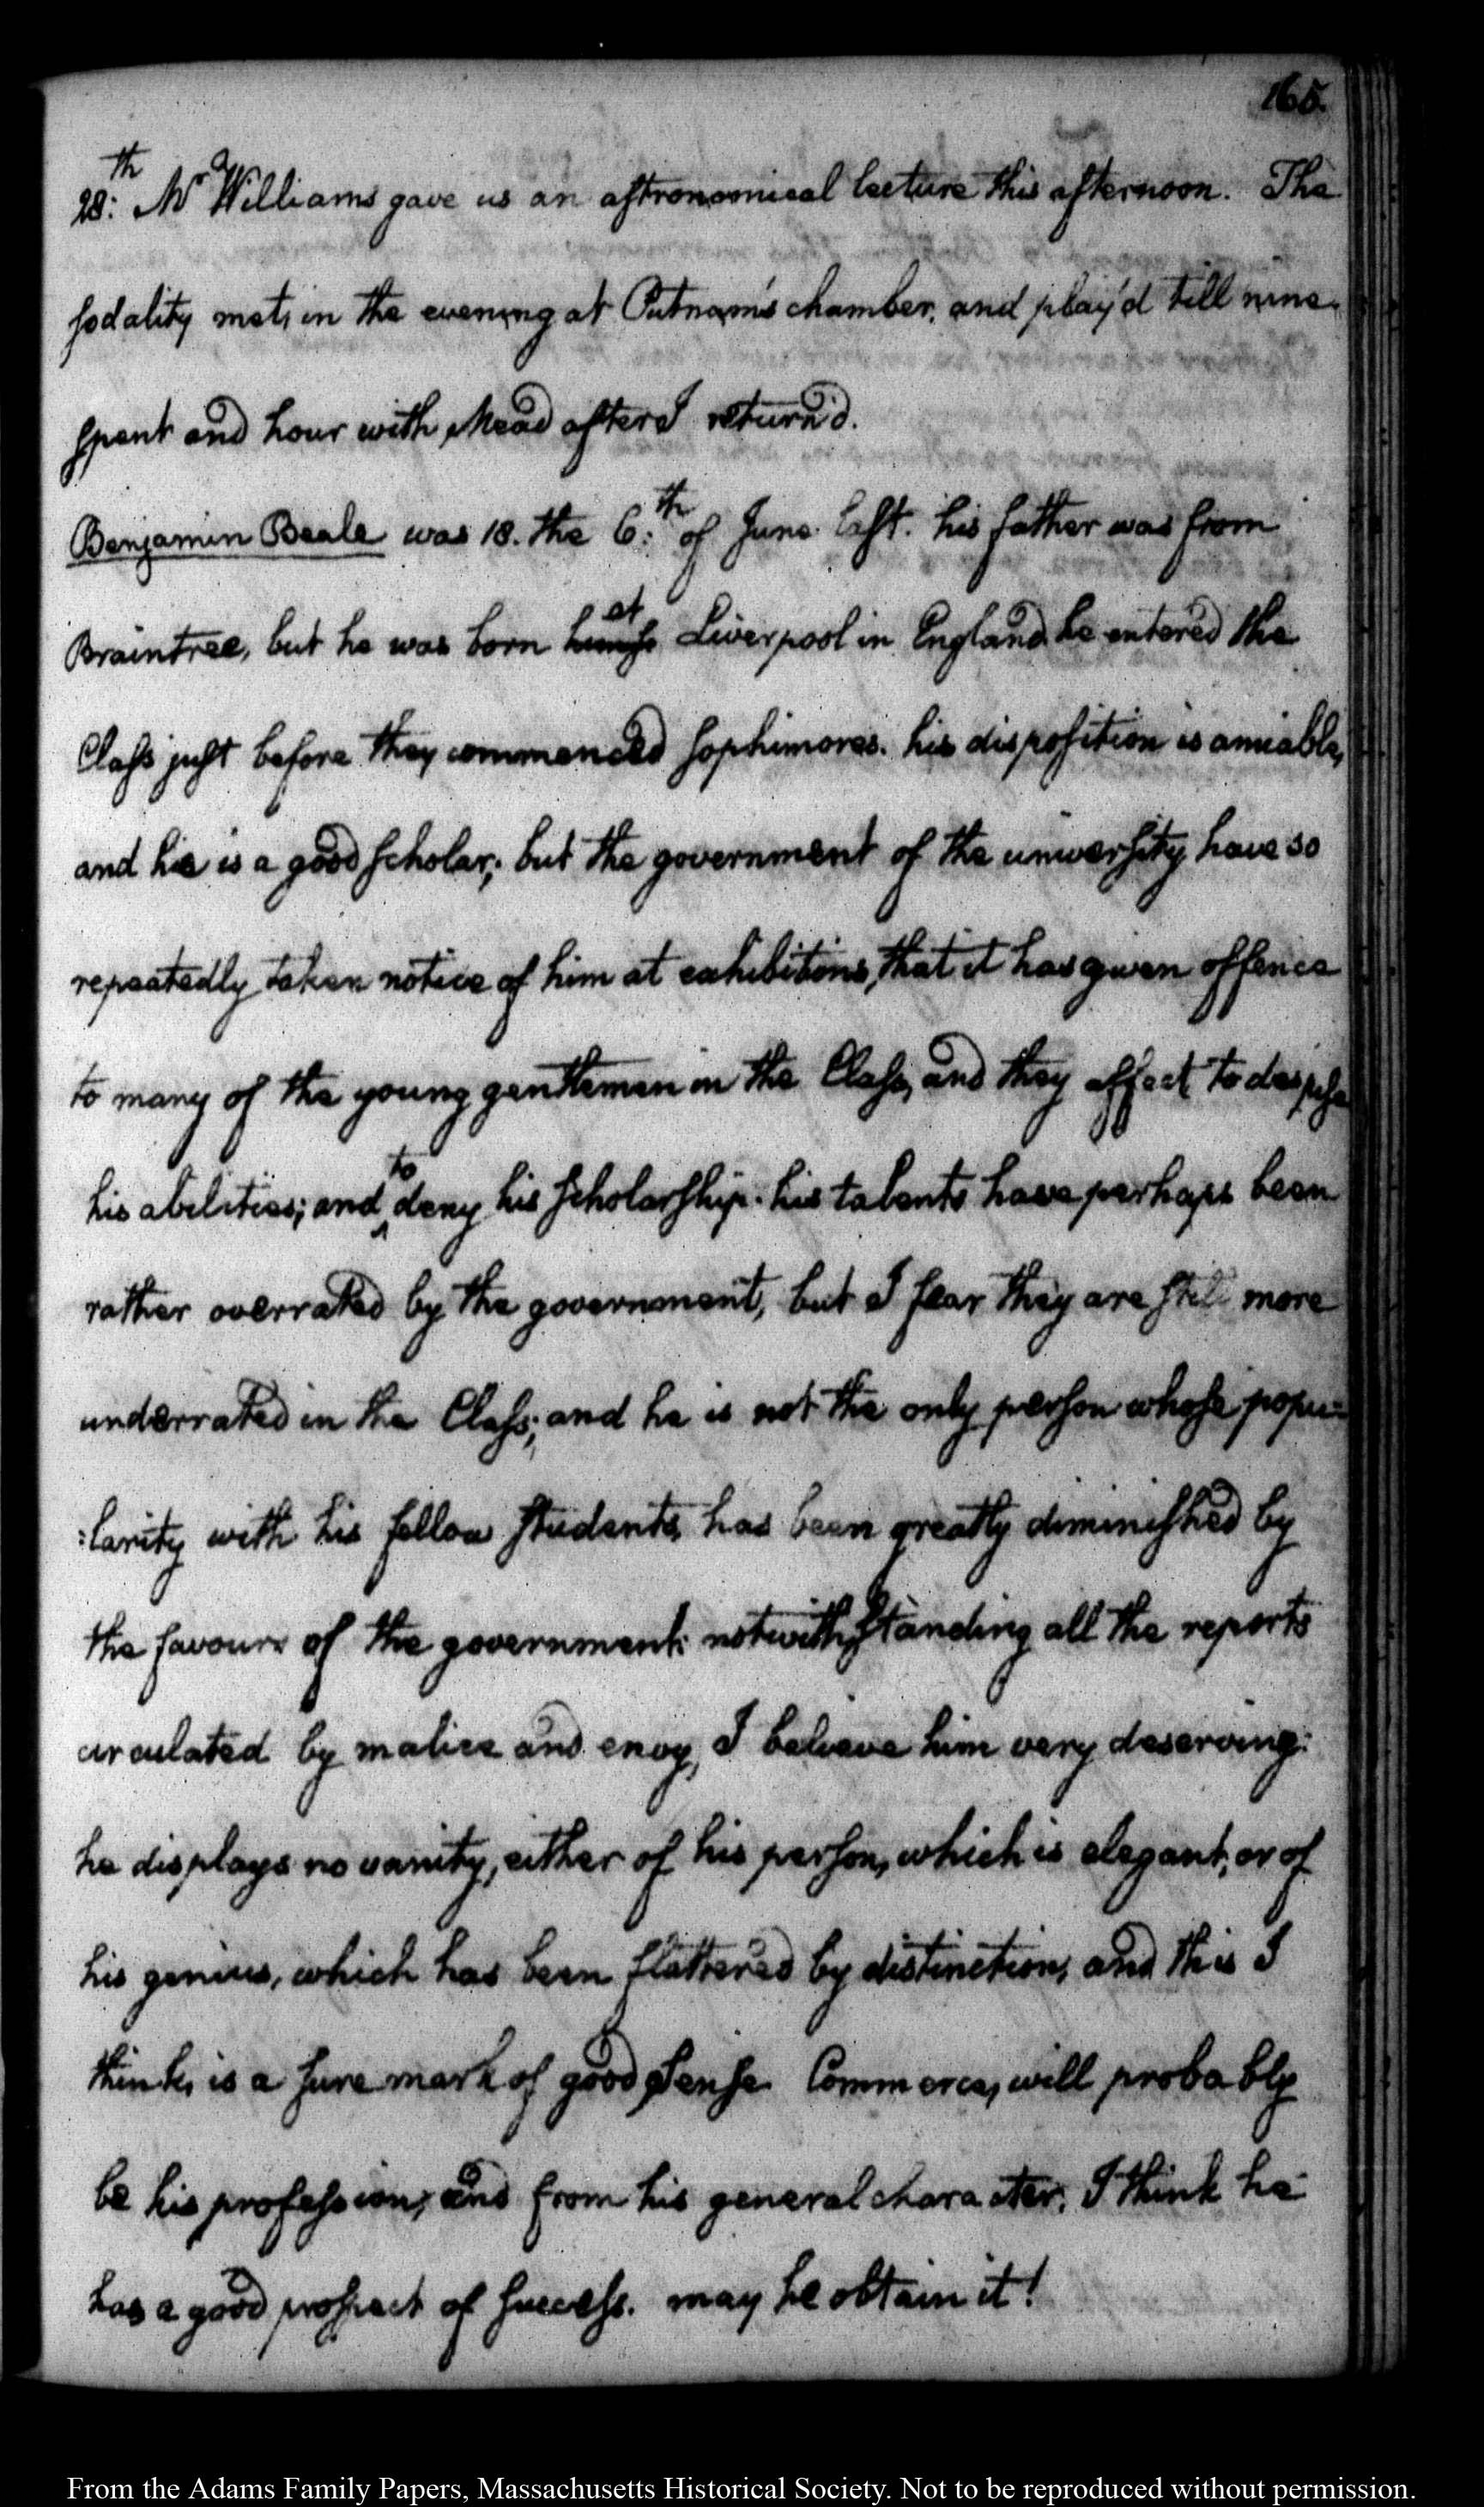 165.
28.th Mr Williams gave us an astronomical lecture this afternoon. The
sodality met, in the evening at Putnam's chamber, and play'd till nine.
spent and hour with Mead after I return'd.
Benjamin Beale was 18. the 6.th of June last. his father was from
Braintree, but he was born at Liverpool in England. he entered the
Class just before they commenced sophimores. his disposition is amiable,
and he is a good scholar; but the government of the university have so
repeatedly taken notice of him at exhibitions, that it has given offence
to many of the young gentlemen in the Class, and they affect to despise
his abilities; and to deny his scholarship. his talents have perhaps been
rather overrated by the government, but I fear they are still more
underrated in the Class; and he is not the only person whose popu=
:larity with his fellow students, has been greatly diminished by
the favours of the government: notwithstanding all the reports
circulated by malice and envy, I believe him very deserving:
he displays no vanity, either of his person, which is elegant, or of
his genius, which has been flattered by distinction, and this I
think, is a sure mark of good sense. Commerce, will probably
be his profession; and from his general character, I think he
has a good prospect of success. may he obtain it!
From the Adams Family Papers, Massachusetts Historical Society. Not to be reproduced without permission.